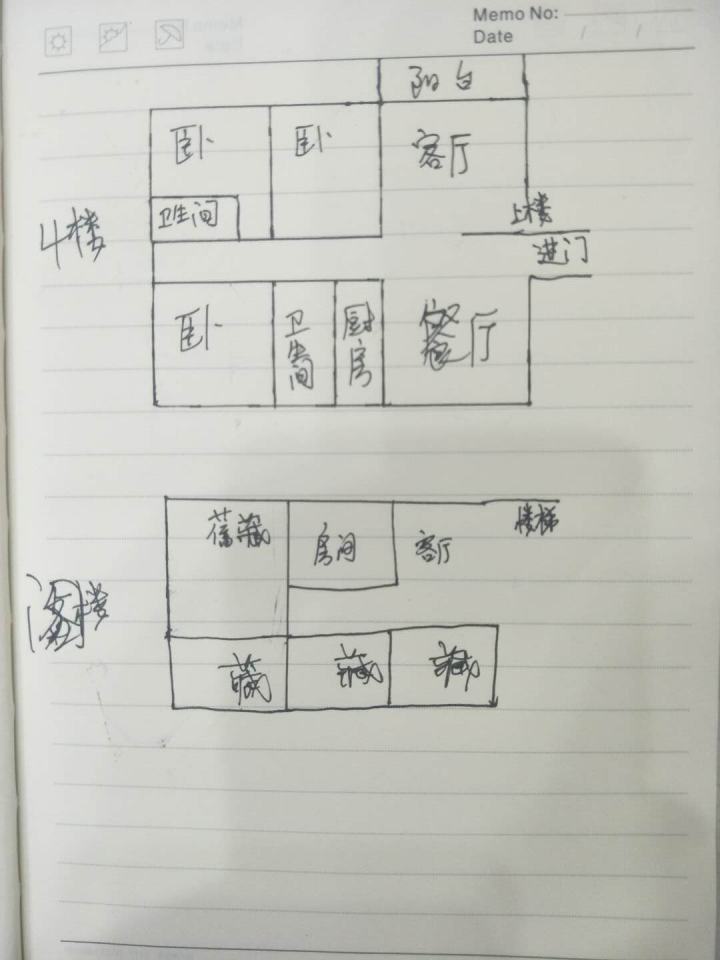 Memo No:
Date / /
阳台
卧 卧 客厅
4楼
卫生间
上楼
进门
卧 卫生间 厨房 餐厅
储藏 房间 客厅 楼梯
阁楼
藏 藏 藏